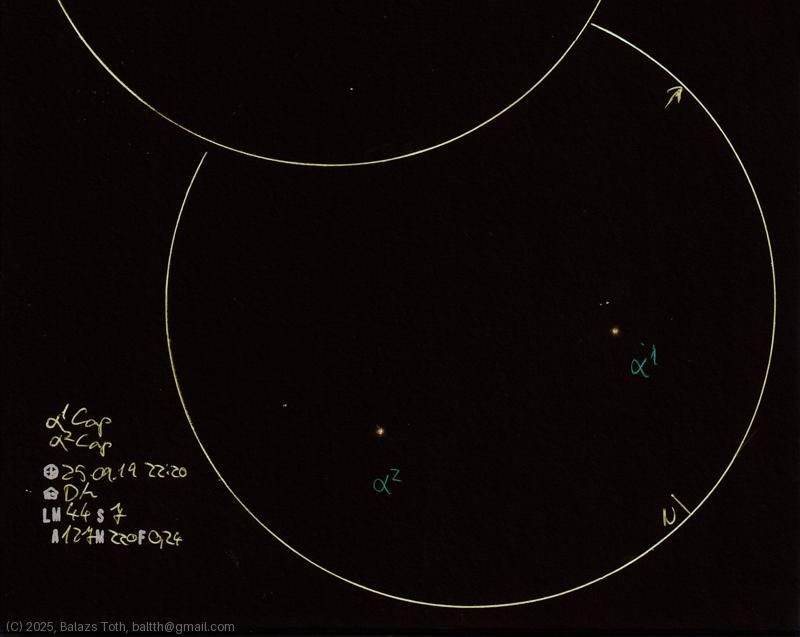 α1
α2
N
α1 Cap
α2 Cap
25.09.19 22:20
LM 44 S 7
A 127 M 220 F 0,24
(C) 2025, Balazs Toth, baltth@gmail.com